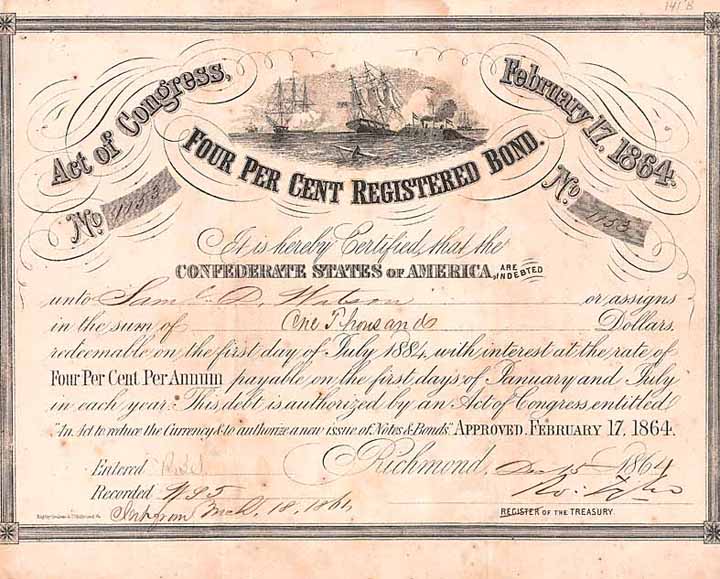 141 B
Act of Congress, February 17, 1864.
FOUR PER CENT REGISTERED BOND.
No. 1153 No. 1153
It is hereby Certified, that the
CONFEDERATE STATES OF AMERICA, ARE INDEBTED
unto Saml D. Watson or assigns
in the sum of One Thousand Dollars
redeemable on the first day of July 1884, with interest at the rate of
Four Per Cent Per Annum payable on the first days of January and July
in each year. This debt is authorized by an Act of Congress, entitled
"An Act to reduce the Currency & to authorize a new issue of Notes & Bonds" APPROVED, FEBRUARY 17, 1864.
Entered Richmond, 1864
Recorded
18, 1864
REGISTER OF THE TREASURY